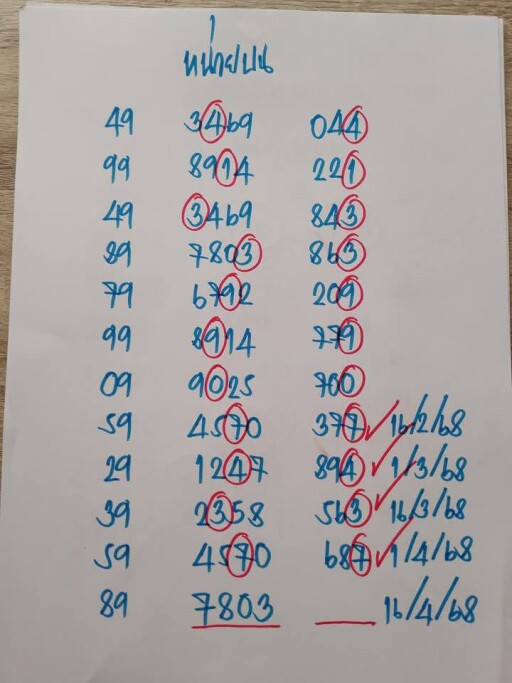 หน่วยบน
49 3469 044
99 8914 221
49 3469 843
89 7803 863
79 6792 209
99 8914 779
09 9025 700
59 4570 377 16/2/68
29 1247 894 1/3/68
39 2358 563 16/3/68
59 4570 687 1/4/68
89 7803 16/4/68